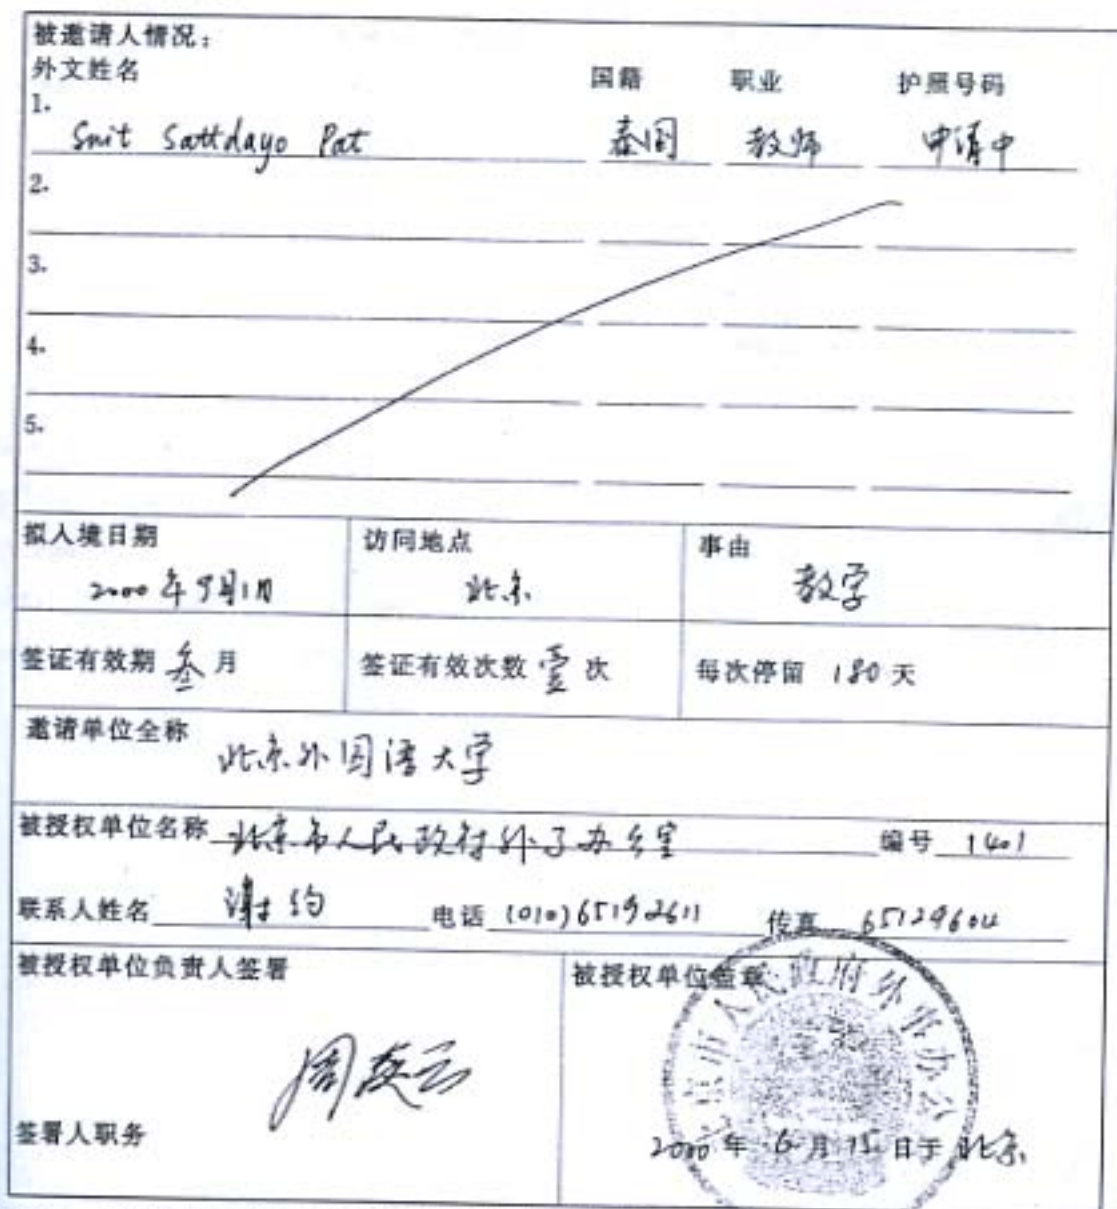 被邀请人情况:
外文姓名 国籍 职业 护照号码
1. Snit Sattdayo Pat 泰国 教师 申请中
2.
3.
4.
5.
拟入境日期 访问地点 事由
2000年9月1日 北京 教学
签证有效期 叁 月 签证有效次数 壹 次 每次停留 180 天
邀请单位全称 北京外国语大学
被授权单位名称 北京市人民政府外事办公室 编号 1401
联系人姓名 谢约 电话 (010)65192611 传真 65129604
被授权单位负责人签署 被授权单位签章
京市人民政府外事办公
签署人职务
2000年 6月 15日于 北京